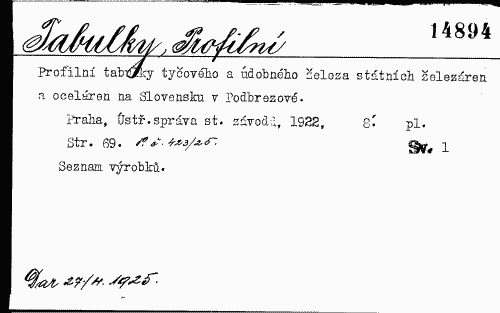 14894
Tabulky, Profilní
Profilní tabulky tyčového a údobného železa státních železáren
a oceláren na Slovensku v Podbrezové.
Praha, Ústř.správa st. závodů, 1922, 8° pl.
Str. 69. P. č. 423/25. Sv. 1
Seznam výrobků.
Dar 27/4. 1925.